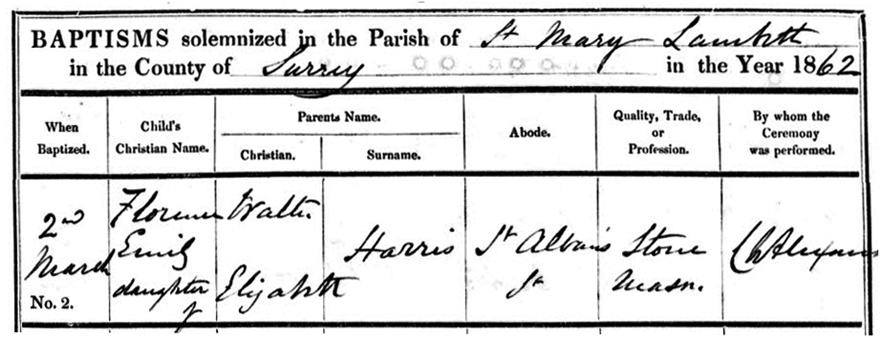 BAPTISMS solemnized in the Parish of St Mary Lambeth
in the County of Surrey in the Year 1862
When Baptized.
Child's Christian Name.
Parents Name.
Christian.
Surname.
Abode.
Quality, Trade, or Profession.
By whom the Ceremony was performed.
2nd
March
No. 2.
Florence
Emily
daughter
of
Walter
Elizabeth
Harris
St Alban's
St
Stone
Mason.